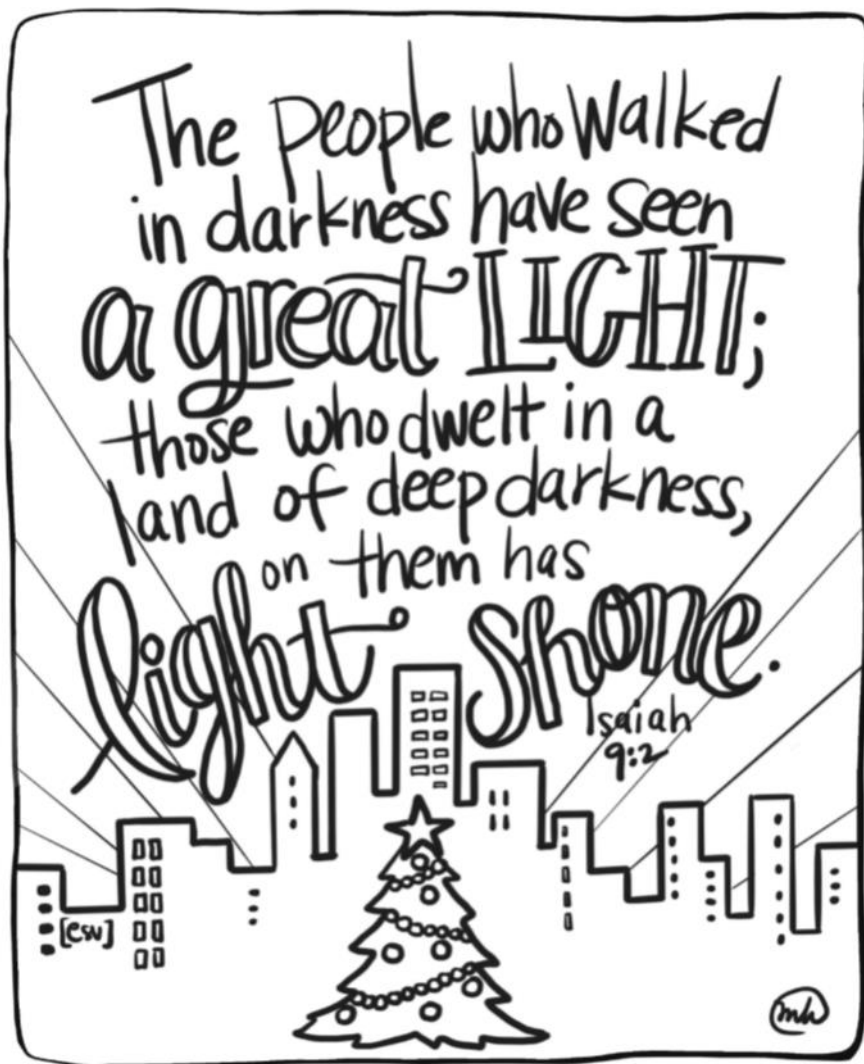 The people who Walked
in darkness have seen
a great LIGHT;
those who dwelt in a
land of deep darkness,
on them has
light shone.
Isaiah
9:2
[esv]
mh